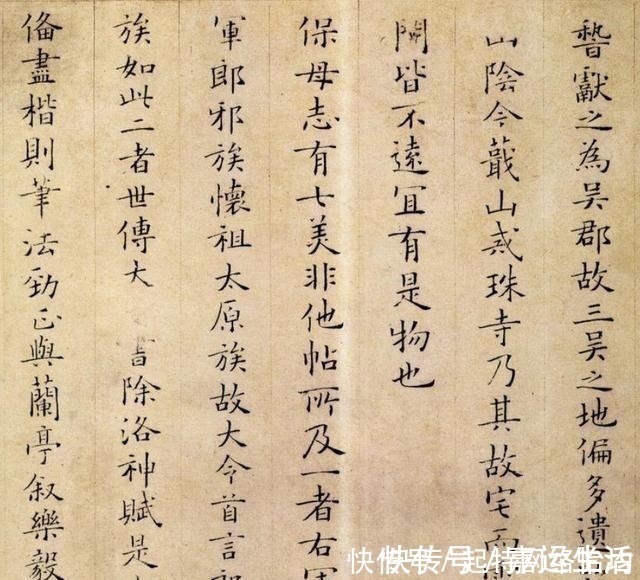 獻之為吳郡故三吳之地偏多遺
山陰今蕺山戒珠寺乃其故宅而
皆不遠宜有是物也
保母志有七美非他帖所及一者右
軍郎邪族懷祖太原族故大令首言
族如此二者世傳大 書除洛神賦是
俻盡楷則筆法勁正與蘭亭叙樂毅